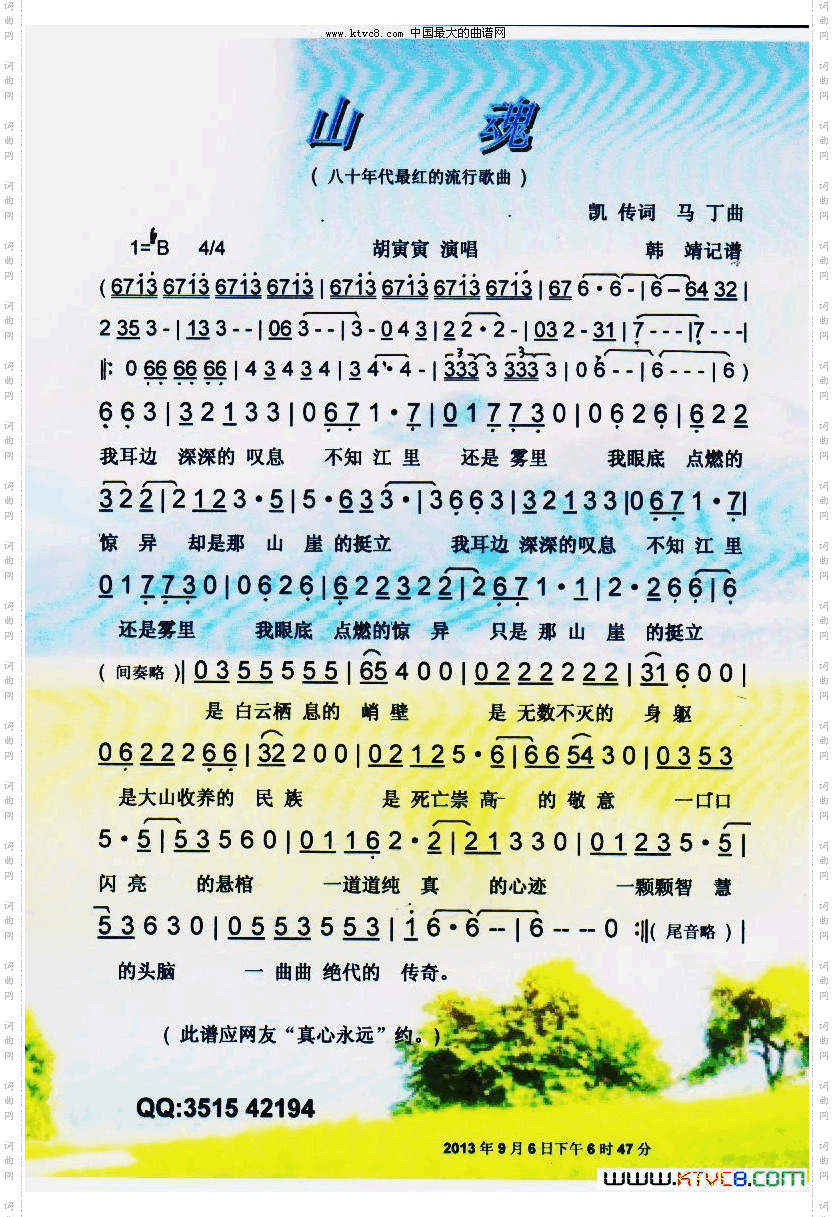 www.ktvc8.com 中国最大的曲谱网
山 魂
( 八十年代最红的流行歌曲 )
凯 传词 马 丁曲
1=♭B 4/4 胡寅寅 演唱 韩 靖记谱
( 6713 6713 6713 6713 | 6713 6713 6713 6713 | 67 6·6- | 6-64 32 |
2 35 3- | 13 3-- | 06 3-- | 3-04 3 | 22·2- | 032-31 | 7--- | 7---|
‖: 0 66 66 66 | 43434 | 34·4- | 333 3 333 3 | 06-- | 6--- | 6 )
663 | 32133 | 0671·7 | 017730 | 0626 | 622
我耳边 深深的 叹息 不知 江 里 还是 雾里 我眼底 点燃的
322 | 2123·5 | 5·633· | 3663 | 32133 | 0671·7 |
惊 异 却是那 山 崖 的挺立 我耳边 深深的叹息 不知 江 里
017730 | 0626 | 622322 | 2671·1 | 2·266 | 6
还是雾里 我眼底 点燃的惊 异 只是 那 山 崖 的挺立
( 间奏略 ) | 0355555 | 65400 | 0222222 | 31600 |
是 白云栖 息的 峭 壁 是 无数不灭的 身 躯
0622266 | 32200 | 02125·6 | 665430 | 0353
是大山收养的 民 族 是 死亡崇 高 的 敬 意 一口口
5·5 | 53560 | 01162·2 | 21330 | 01235·5 |
闪 亮 的悬棺 一道道纯 真 的心迹 一颗颗智 慧
53630 | 0553553 | 16·6-- | 6---0 :‖ ( 尾音略 ) |
的头脑 一 曲曲 绝代的 传奇。
( 此谱应网友“真心永远”约。)
QQ:3515 42194
2013 年 9 月 6 日下午 6 时 47 分
www.KTVC8.com
词曲网